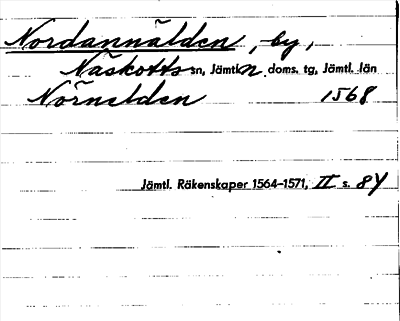 Nordannälden, by,
Näskotts sn, Jämtl. n. doms. tg, Jämtl. län
Nörnelden 1568
Jämtl. Räkenskaper 1564–1571, II s. 84